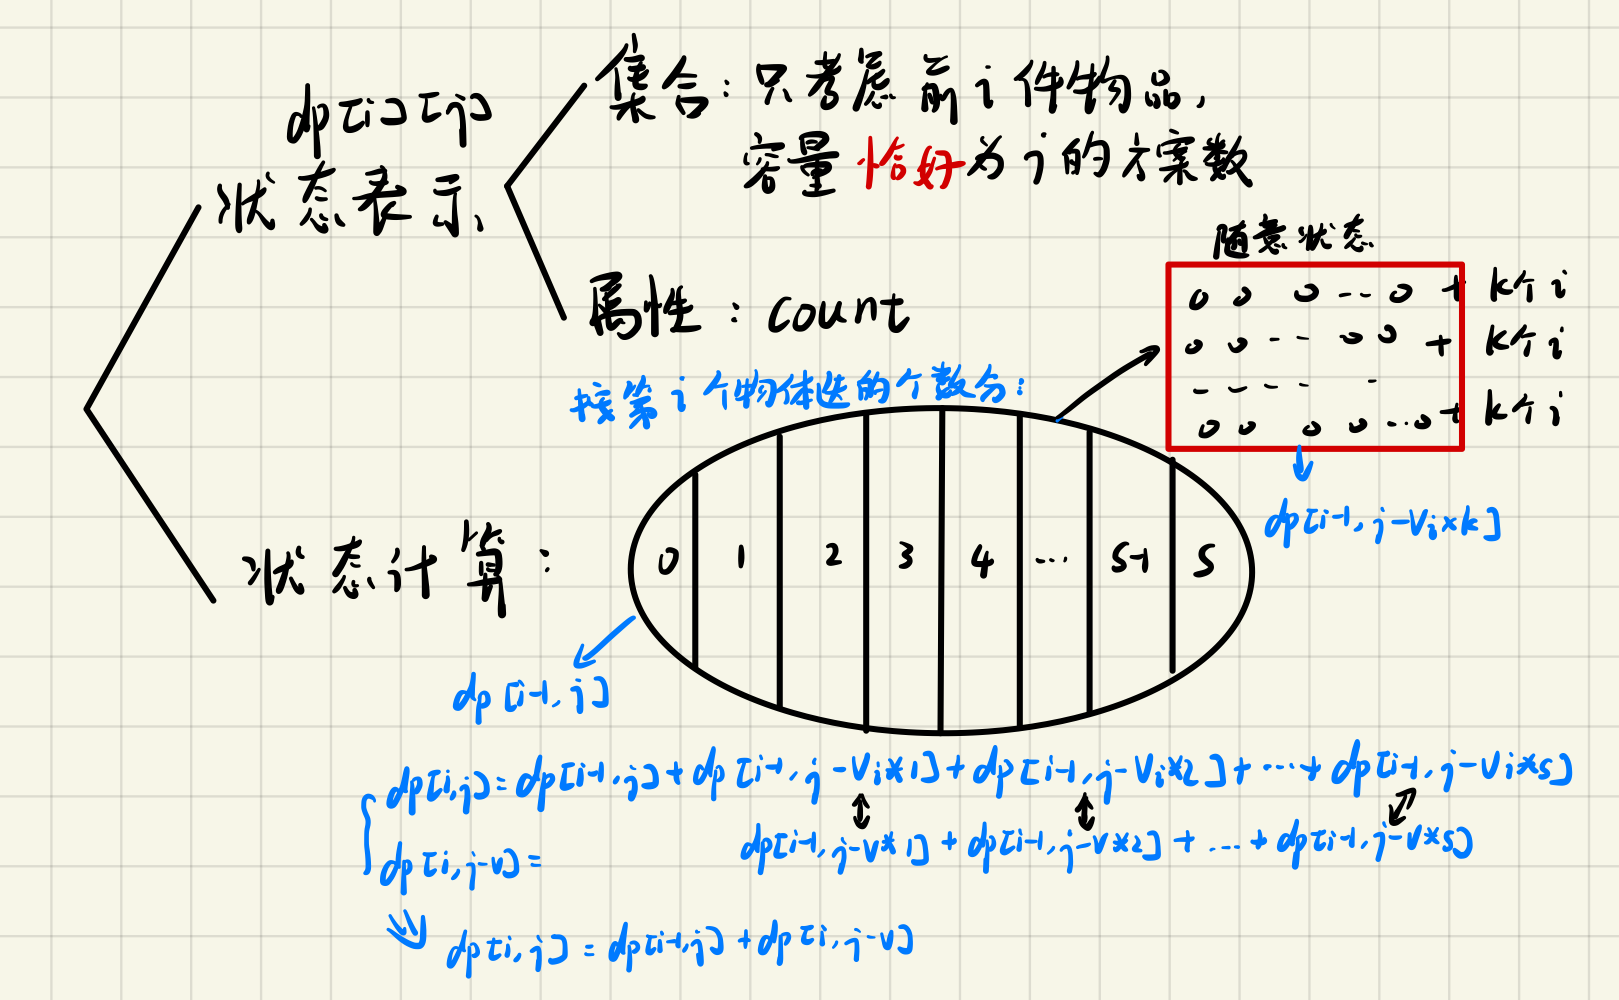 dp[i][j]
状态表示
集合：只考虑前i件物品，
容量恰好为j的方案数
属性：count
随意状态
0 0 0 -- 0 + k个i
0 0 -- -- 0 0 + k个i
- - - - -
0 0 0 0 --0 + k个i
dp[i-1, j-Vi×k]
按第i个物体选的个数分：
状态计算：
0 1 2 3 4 ... S-1 S
dp[i-1, j]
dp[i,j]=dp[i-1,j]+dp[i-1, j-Vi*1]+dp[i-1,j-Vi*2]+...+dp[i-1, j-Vi*s]
dp[i,j-v]= dp[i-1, j-v*1]+dp[i-1,j-v*2]+...+dp[i-1,j-v*s]
dp[i,j]=dp[i-1,j]+dp[i,j-v]